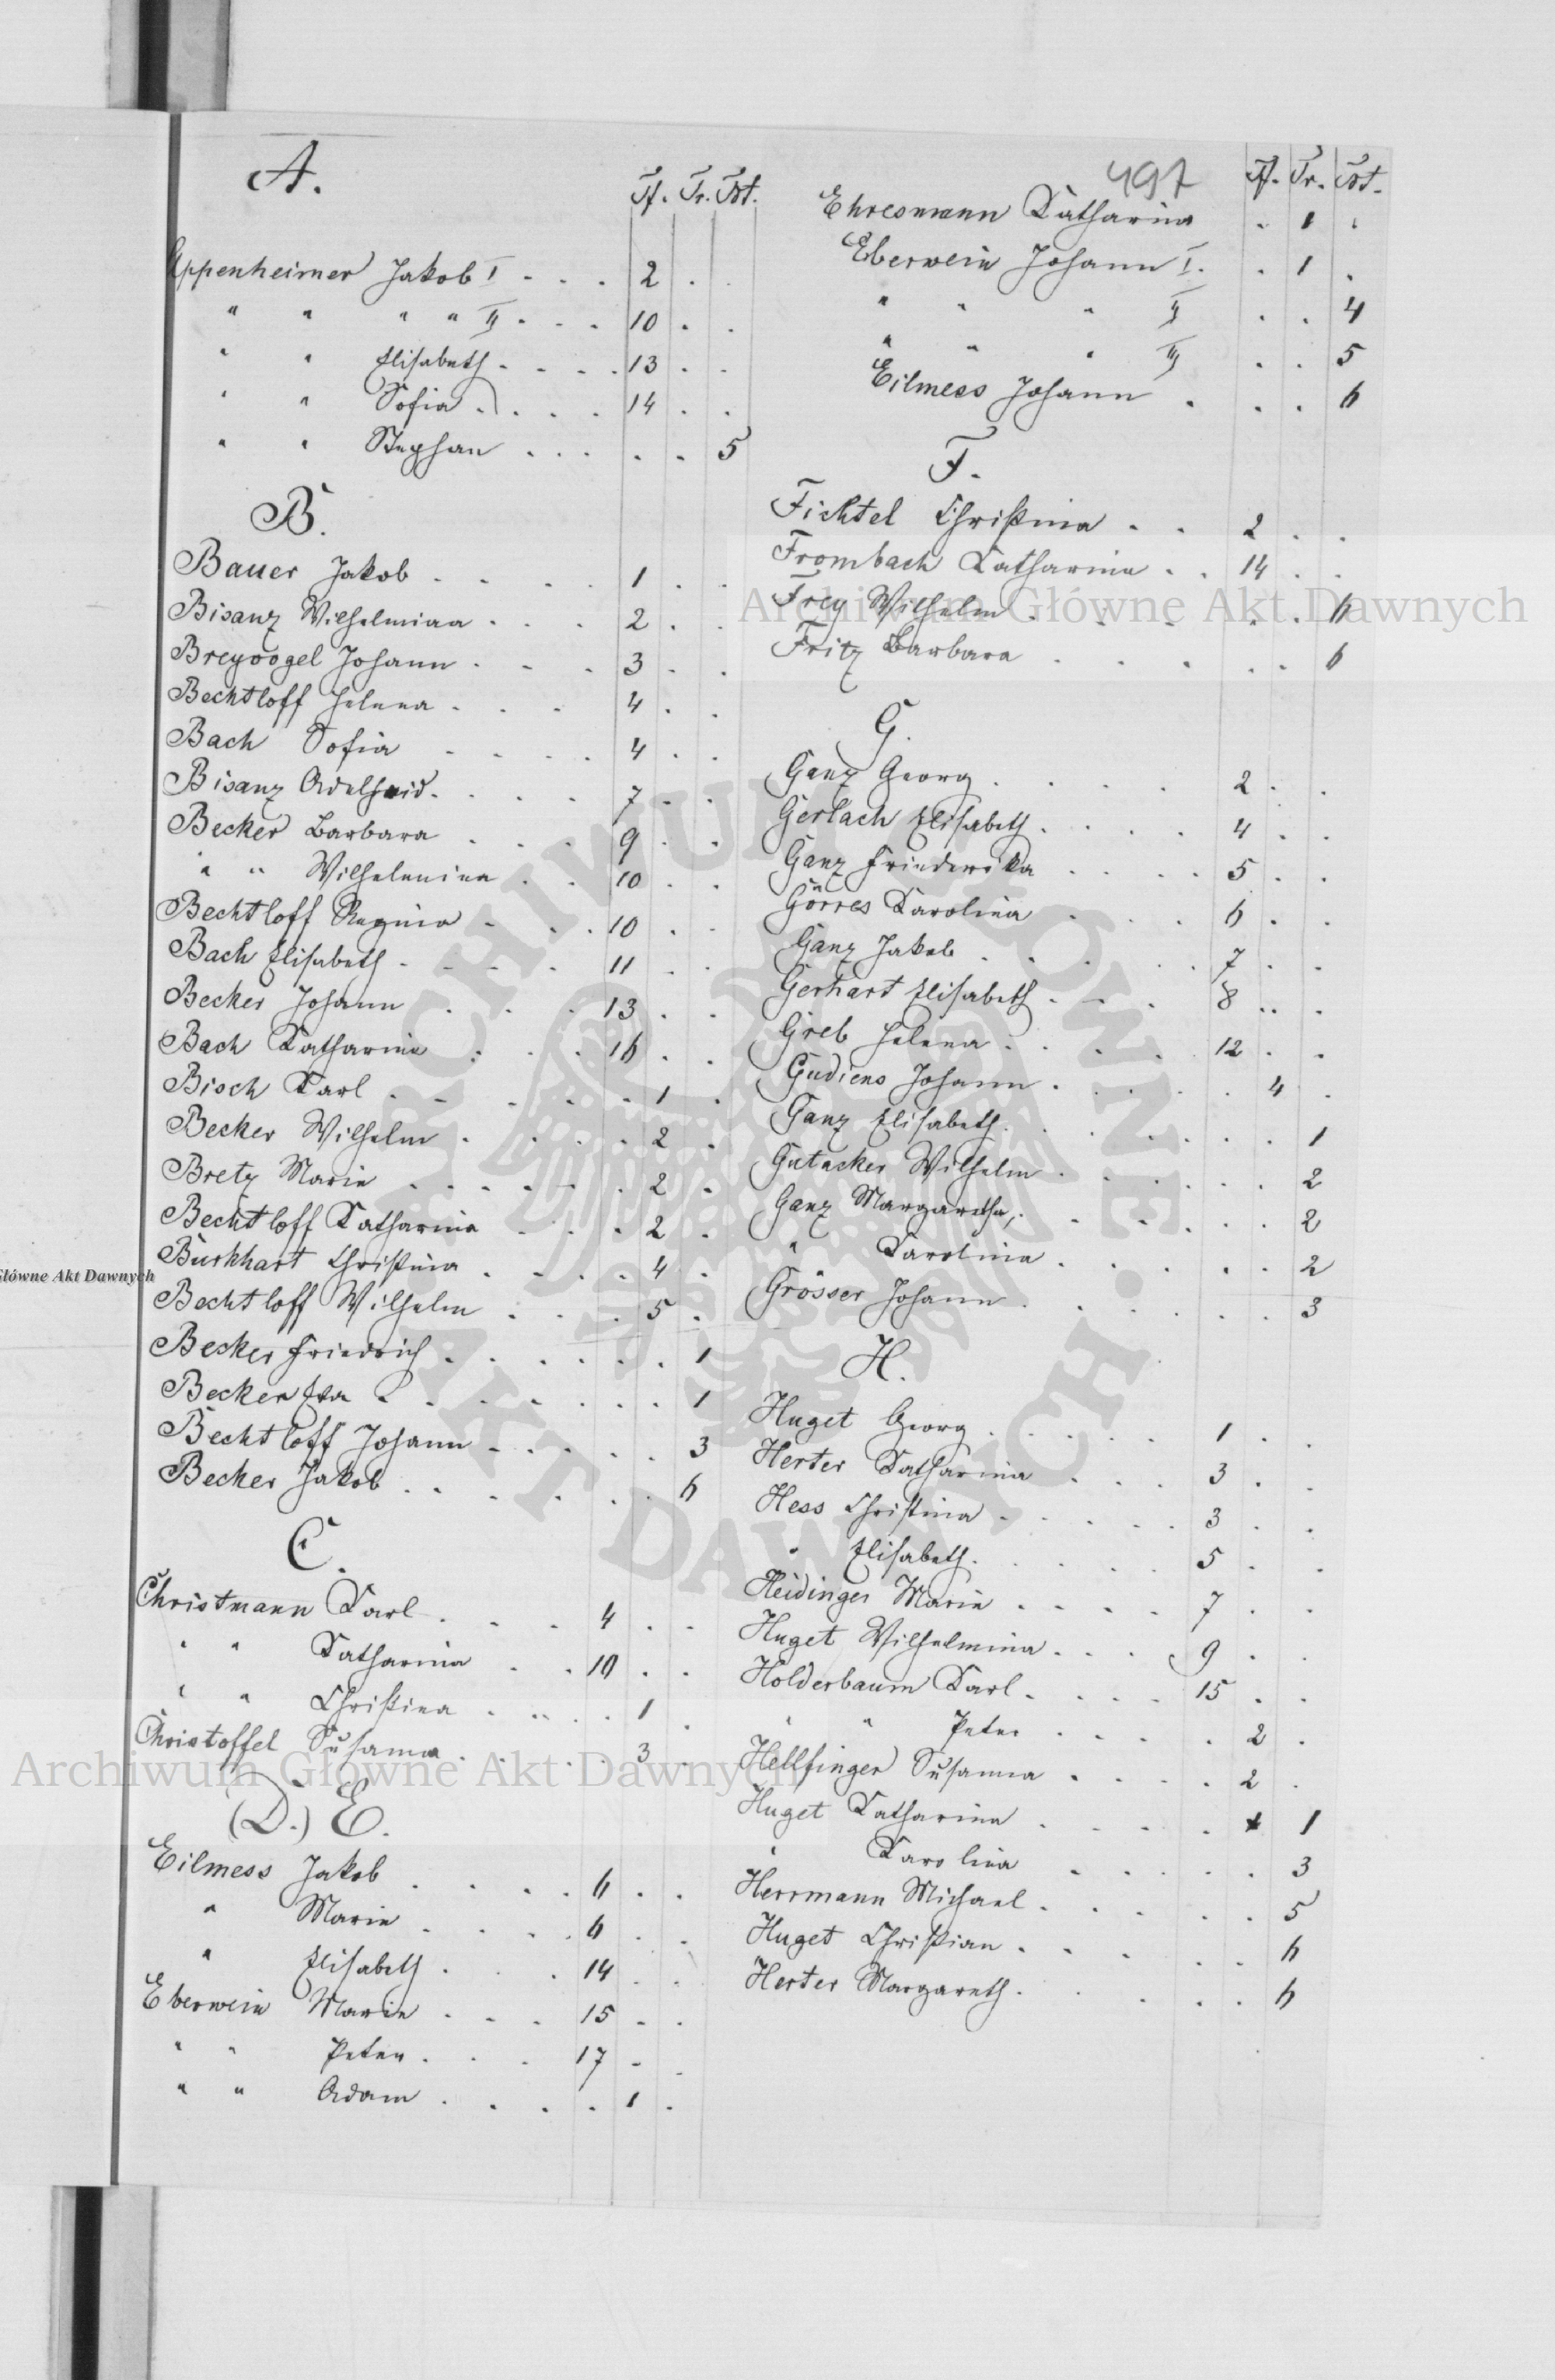 A.
Tf. Tr. Tot.
Appenheimer Jakob I . . . 2 . .
" " " " II . . . 10 . .
" " Elisabeth . . . . 13 . .
" " Sofia . . . . 14 . .
" " Stephan . . . . . 5
B.
Bauer Jakob . . . . 1 . .
Bisanz Wilhelmina . . . 2 . .
Breyvogel Johann . . . 3 . .
Bechtloff Helena . . . 4 . .
Bach Sofia . . . . 4 . .
Bisanz Adelheid . . . . 7 . .
Becker Barbara . . . 9 . .
" " Wilhelmina . . 10 . .
Bechtloff Regina . . . 10 . .
Bach Elisabeth . . . . 11 . .
Becker Johann . . . 13 . .
Bach Katharina . . . 16 . .
Bisch Karl . . . . . . 1 .
Becker Wilhelm . . . . 2 .
Bretz Marie . . . . . . 2 .
Bechtloff Katharina . . . 2 .
Burkhart Christina . . . . 4 .
Bechtloff Wilhelm . . . 5 .
Becker Friedrich . . . . . . 1
Becker Eva . . . . . . . 1
Bechtloff Johann . . . . . 3
Becker Jakob . . . . . . 6
C.
Christmann Karl . . . 4 . .
" " Katharina . . 10 . .
" " Christina . . . . 1 .
Christoffel Susanna . . . . 3 .
(D.) E.
Eilmess Jakob . . . . 6 . .
" Marie . . . . 6 . .
" Elisabeth . . . 14 . .
Eberwein Marie . . . 15 . .
" " Peter . . . 17 . .
" " Adam . . . . 1 .
497
Tf. Tr. Tot.
Ehresmann Katharina . 1 .
Eberwein Johann I. . 1 .
" " " II . . 4
" " " III . . 5
Eilmess Johann . . . 6
F.
Fichtel Christina . . 2 . .
Frombach Katharina . . 14 . .
Frey Wilhelm . . . . . 6
Fritz Barbara . . . . . 6
G.
Ganz Georg . . . . 2 . .
Gerlach Elisabeth . . . . 4 . .
Ganz Friederika . . . . 5 . .
Görres Karolina . . . 6 . .
Ganz Jakob . . . . . 7 . .
Gerhart Elisabeth . . . 8 . .
Greb Helena . . . . . 12 . .
Gudiens Johann . . . . . 4 .
Ganz Elisabeth . . . . . . . 1
Gutacker Wilhelm . . . . . . 2
Ganz Margaretha, . . . . . . 2
" Karolina . . . . . . 2
Grösser Johann . . . . . . 3
H.
Huget Georg . . . . . 1 . .
Herter Katharina . . . 3 . .
Hess Christina . . . . . 3 . .
" Elisabeth . . . . . 5 . .
Heidinger Marie . . . . 7 . .
Huget Wilhelmina . . . 9 . .
Holderbaum Karl . . . . 15 . .
" " Peter . . . . 2 .
Hellfinger Susanna . . . . 2 .
Huget Katharina . . . . 1
" Karolina . . . . . 3
Herrmann Michael . . . . . 5
Huget Christian . . . . . 6
Herter Margareth . . . . 6
Archiwum Główne Akt Dawnych
Główne Akt Dawnych
Archiwum Główne Akt Dawnych
ARCHIWUM GŁÓWNE • AKT DAWNYCH •